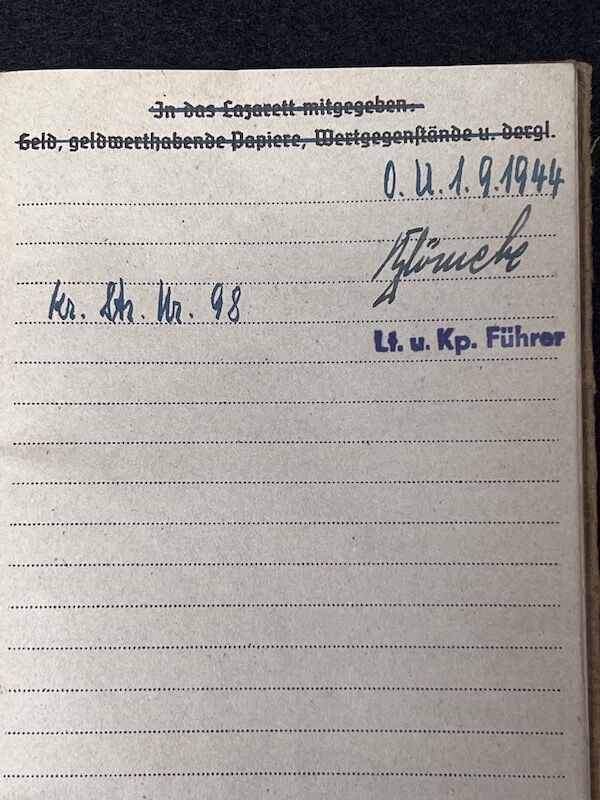 In das Lazarett mitgegeben:
Geld, geldwerthabende Papiere, Wertgegenstände u. dergl.
O. U. 1. 9. 1944
Kr. Str. Nr. 98
Lt. u. Kp. Führer